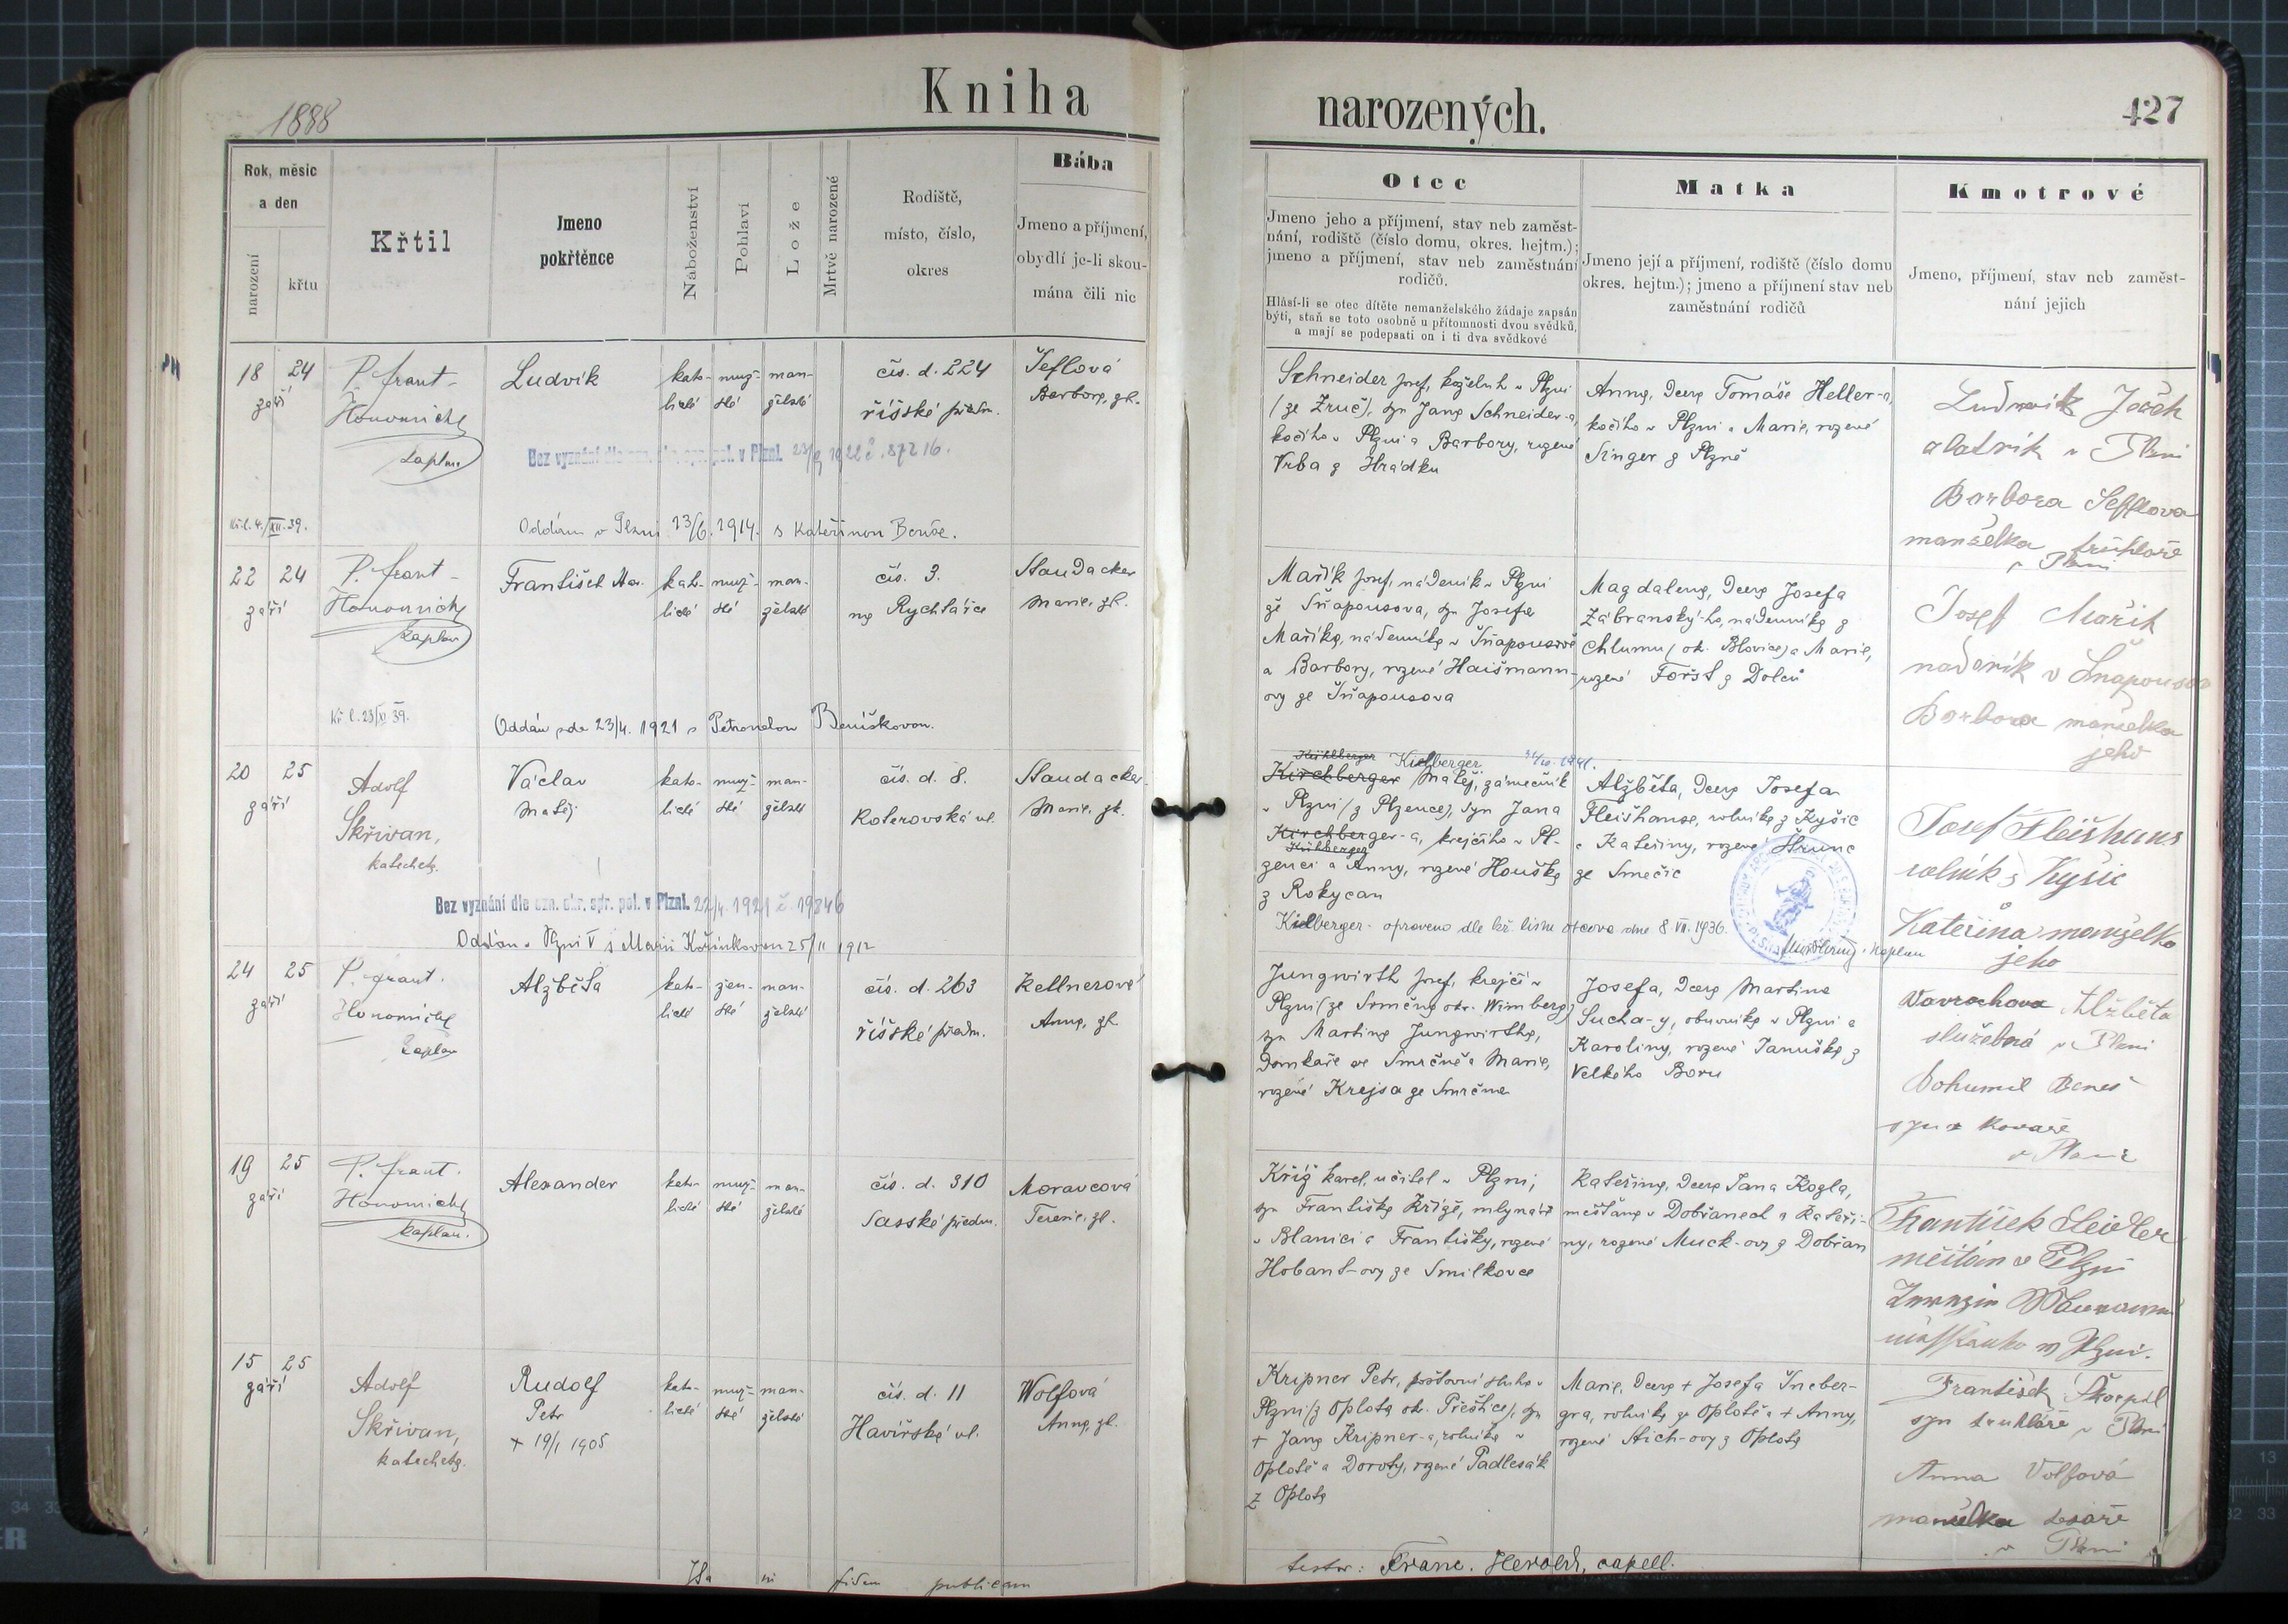 1888
Kniha
narozených.
427
Rok, měsíc
a den
narození
křtu
Křtil
Jmeno
pokřtěnce
Náboženství
Pohlaví
Lože
Mrtvě narozené
Rodiště,
místo, číslo,
okres
Bába
Jmeno a příjmení,
obydlí je-li skou-
mána čili nic
Otec
Jmeno jeho a příjmení, stav neb zaměst-
nání, rodiště (číslo domu, okres. hejtm.);
jmeno a příjmení, stav neb zaměstnání
rodičů.
Hlásí-li se otec dítěte nemanželského žádaje zapsán
býti, staň se toto osobně u přítomnosti dvou svědků,
a mají se podepsati on i ti dva svědkové
Matka
Jmeno její a příjmení, rodiště (číslo domu
okres. hejtm.); jmeno a příjmení stav neb
zaměstnání rodičů
Kmotrové
Jmeno, příjmení, stav neb zaměst-
nání jejich
18 24
září
P. Frant.
kaplan
Ludvík
kato-
lické
muž-
ské
man-
želské
čís. d. 224
říšské předm.
Šeflová
Barbora, zk.
Bez vyznání dle ozn. okr. spr. pol. v Plzni.
Oddán v Plzni 23/6. 1914. s Kateřinou
Schneider Josef, koželuh v Plzni
(ze Zruč), syn Jana Schneider-a,
kočího v Plzni a Barbory, rozené
Vrba z Hrádku
Anna, dcera Tomáše Heller-a,
kočího v Plzni a Marie, rozené
Singer z Plzně
Ludvík
zlatník v Plzni
Barbora Šefflova
manželka truhláře
v Plzni
22 24
září
P. Frant.
kaplan
František
kato-
lické
muž-
ské
man-
želské
čís. 3.
na Rychtářce
Staudacker
Marie, zk.
Oddán zde 23/4. 1921 s Petronelou Beníškovou.
Mařík Josef, nádeník v Plzni
ze Šňapousova, syn Josefa
Maříka, nádenníka v Šňapousově
a Barbory, rozené Haišmann-
ovy ze Šňapousova
Magdalena, dcera Josefa
Zábranský-ho, nádenníka z
Chlumu (ok. Blovice) a Marie,
rozené Foršt z Dolců
Josef Mařík
nádeník v Šnapousov
Barbora manželka
jeho
20 25
září
Adolf
Skřivan,
katecheta.
Václav
Matěj
kato-
lické
muž-
ské
man-
želské
čís. d. 8.
Koterovská ul.
Staudacker
Marie, zk.
Bez vyznání dle ozn. okr. spr. pol. v Plzni. 22/4. 1921 č. 19846
Oddán v Plzni s Marií Kořínkovou 25/11 1912
Kielberger
Kirchberger Matěj, zámečník
v Plzni (z Plzence), syn Jana
Kirchberger-a, krejčího v Pl-
zenci a Anny, rozené Houška
z Rokycan
Kielberger - opraveno dle kř. listu otcova dne 8 VII. 1936.
Alžběta, dcera Josefa
Fleišhanse, rolníka z Kyšic
a Kateřiny, rozené Štrunc
ze Smečic
kaplan
Josef Fleišhans
rolník z Kyšic
Kateřina manželka
jeho
24 25
září
P. Frant.
kaplan
Alžběta
kato-
lické
žen-
ské
man-
želské
čís. d. 263
říšské předm.
Kellnerová
Anna, zk.
Jungwirth Josef, krejčí v
Plzni (ze Smrčna okr. Wimberg)
syn Martina Jungwirtha,
domkaře ve Smrčně a Marie,
rozené Krejsa ze Smrčna
Josefa, dcera Martina
Sucha-y, obuvníka v Plzni a
Karoliny, rozené Januška z
Velkého Boru
Alžběta
služebná v Plzni
Bohumil Beneš
syn kováře
v Plzni
19 25
září
P. Frant.
kaplan.
Alexander
kato-
lické
muž-
ské
man-
želské
čís. d. 310
Sasské předm.
Moravcová
Terezie, zk.
Kříž Karel, učitel v Plzni,
syn Františka Kříže, mlynáře
v Blanici a Františky, rozené
Hobant-ovy ze Smilkova
Kateřina, dcera Jana Kogla,
měšťana v Dobřanech a Kateři-
ny, rozené Muck-ovy z Dobřan
František
měšťan v Plzni
15 25
září
Adolf
Skřivan,
katecheta.
Rudolf
Petr
+ 19/1 1905
kato-
lické
muž-
ské
man-
želské
čís. d. 11
Havířská ul.
Wolfová
Anna, zk.
Kripner Petr, poštovní sluha v
Plzni (z Oplota ok. Přeštice), syn
+ Jana Kripner-a, rolníka v
Oplotě a Doroty, rozené Padlesák
z Oplota
Marie, dcera + Josefa Šneber-
gra, rolníka ze Oplotě a + Anny,
rozené Stich-ovy z Oplota
František Škorpil
syn truhláře v Plzni
Anna Volfová
manželka tesaře
v Plzni
fidem publicam
testor: Franc. Herold, capell.